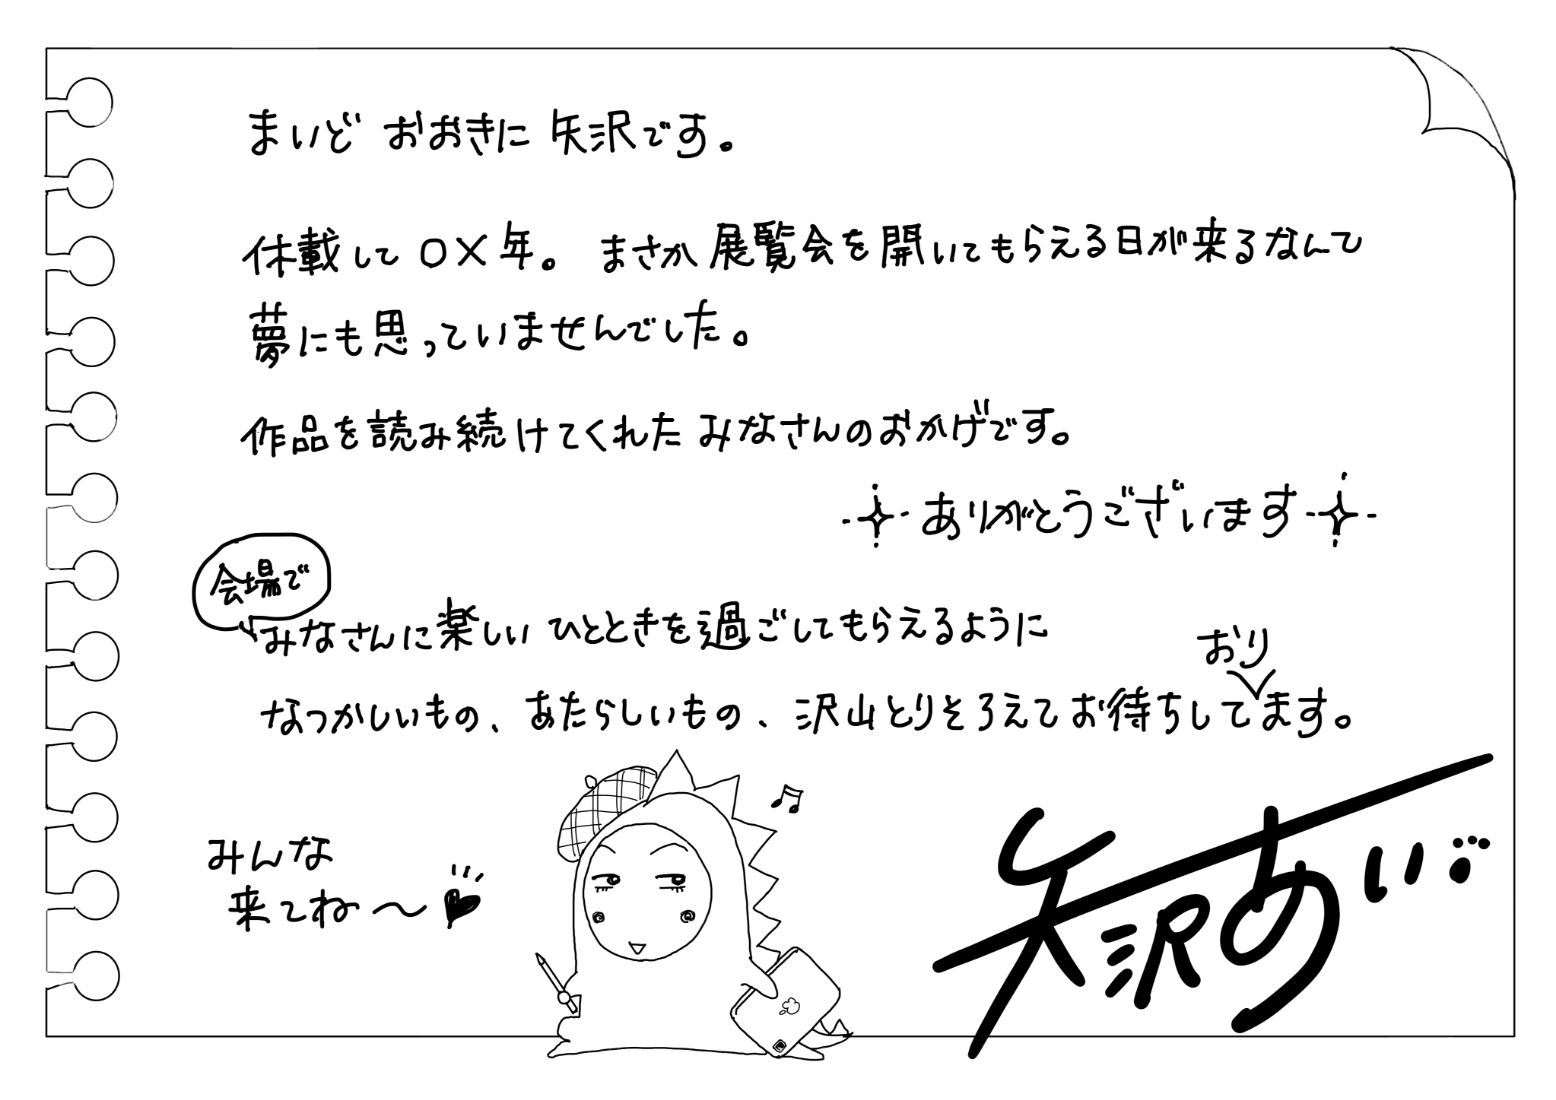 まいど おおきに 矢沢です。
休載して〇×年。 まさか展覧会を開いてもらえる日が来るなんて
夢にも思っていませんでした。
作品を読み続けてくれた みなさんのおかげです。
ありがとうございます
会場で
みなさんに楽しい ひとときを過ごしてもらえるように
おり
なつかしいもの、あたらしいもの、沢山とりそろえてお待ちしてます。
みんな
来てね〜
矢沢あい